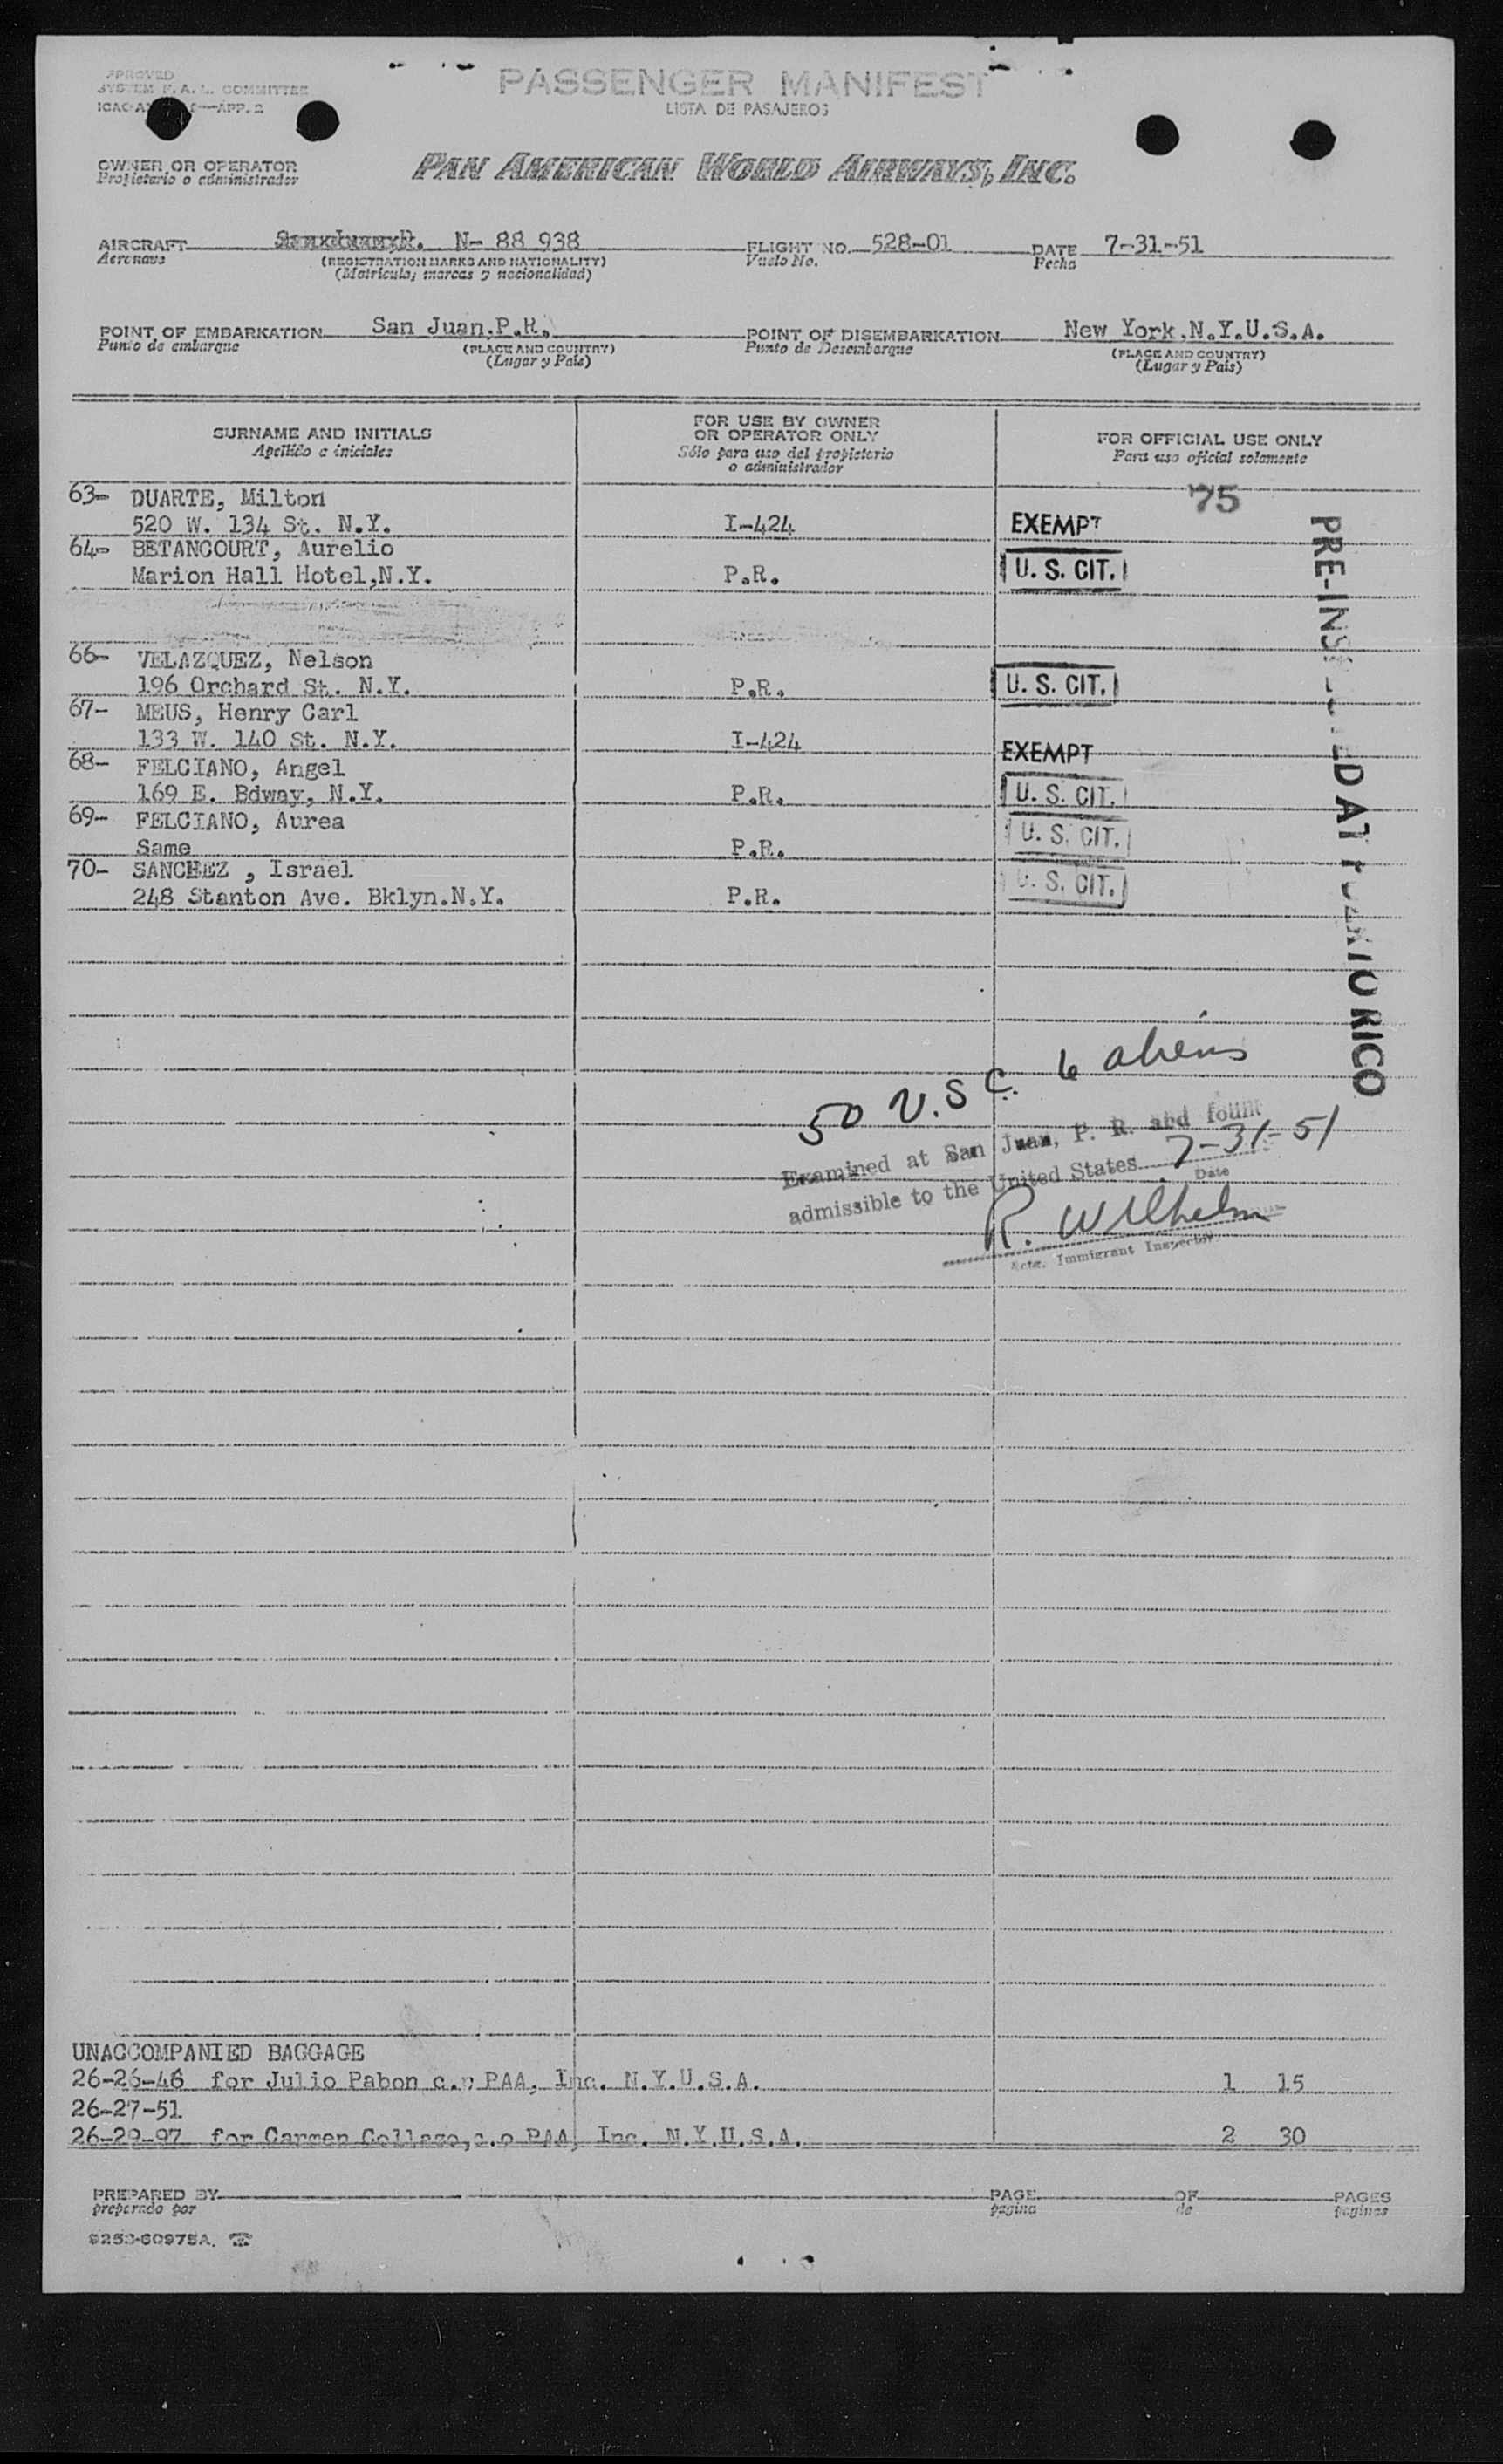 APPROVED
SYSTEM F. A. L. COMMITTEE
APP. 2
PASSENGER MANIFEST
LISTA DE PASAJEROS
OWNER OR OPERATOR
Propietario o administrador
PAN AMERICAN WORLD AIRWAYS, INC.
AIRCRAFT N- 88 938 FLIGHT NO. 528-01 DATE 7-31-51
Aeronave (REGISTRATION MARKS AND NATIONALITY) Vuelo No. Fecha
(Matricula, marcas y nacionalidad)
POINT OF EMBARKATION San Juan,P.R. POINT OF DISEMBARKATION New York.N.Y.U.S.A.
Punto de embarque (PLACE AND COUNTRY) Punto de Desembarque (PLACE AND COUNTRY)
(Lugar y Pais) (Lugar y Pais)
SURNAME AND INITIALS FOR USE BY OWNER OR OPERATOR ONLY FOR OFFICIAL USE ONLY
Apellido e iniciales Sólo para uso del propietario o administrador Para uso oficial solamente
75
63- DUARTE, Milton
520 W. 134 St. N.Y. I-424 EXEMPT
64- BETANCOURT, Aurelio
Marion Hall Hotel,N.Y. P.R. U. S. CIT.
66- VELAZQUEZ, Nelson
196 Orchard St. N.Y. P.R. U. S. CIT.
67- MEUS, Henry Carl
133 W. 140 St. N.Y. I-424 EXEMPT
68- FELCIANO, Angel
169 E. Bdway, N.Y. P.R. U. S. CIT.
69- FELCIANO, Aurea
Same P.R. U. S. CIT.
70- SANCHEZ , Israel
248 Stanton Ave. Bklyn.N.Y. P.R. U. S. CIT.
PRE-INSPECTED AT PUERTO RICO
50 U.S C. 6 aliens
Examined at San Juan, P. R. and found
admissible to the United States 7-31-51
Date
R. Wilhelm
Actg. Immigrant Inspector
UNACCOMPANIED BAGGAGE
26-26-46 for Julio Pabon c.o PAA, Inc. N.Y.U.S.A. 1 15
26-27-51
26-29-97 for Carmen Collazo,c.o PAA, Inc. N.Y.U.S.A. 2 30
PREPARED BY PAGE OF PAGES
preparado por pagina de paginas
9253-60975A.